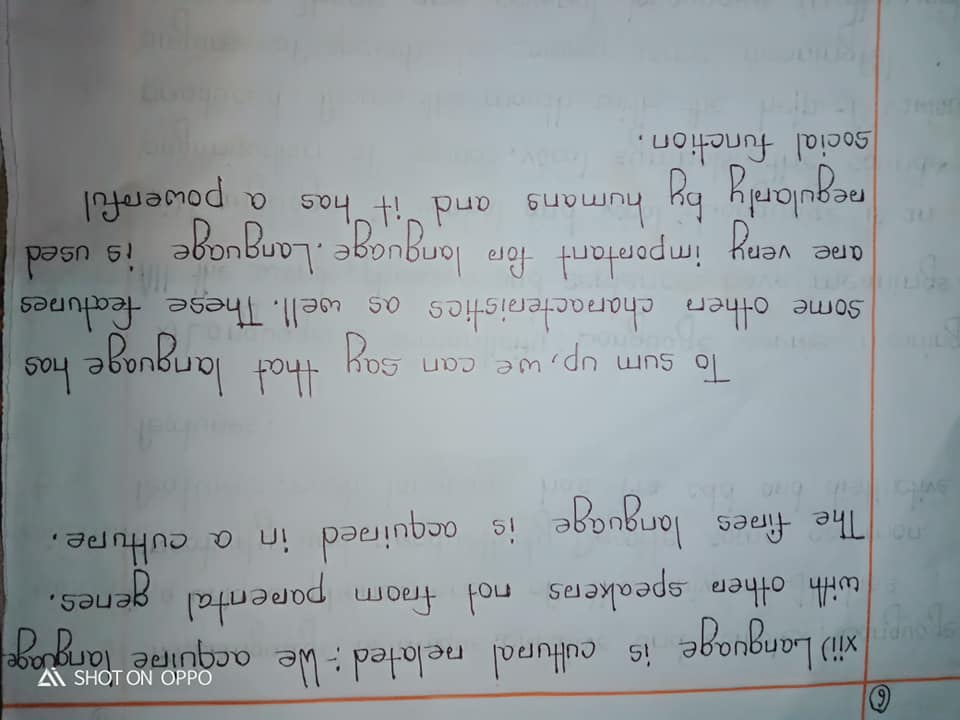 6
xii) Language is cultural related :- We acquire language
with other speakers not from parental genes.
The fires language is acquired in a culture.
To sum up, we can say that language has
some other characteristics as well. These features
are very important for language. Language is used
regularly by humans and it has a powerful
social function.
SHOT ON OPPO